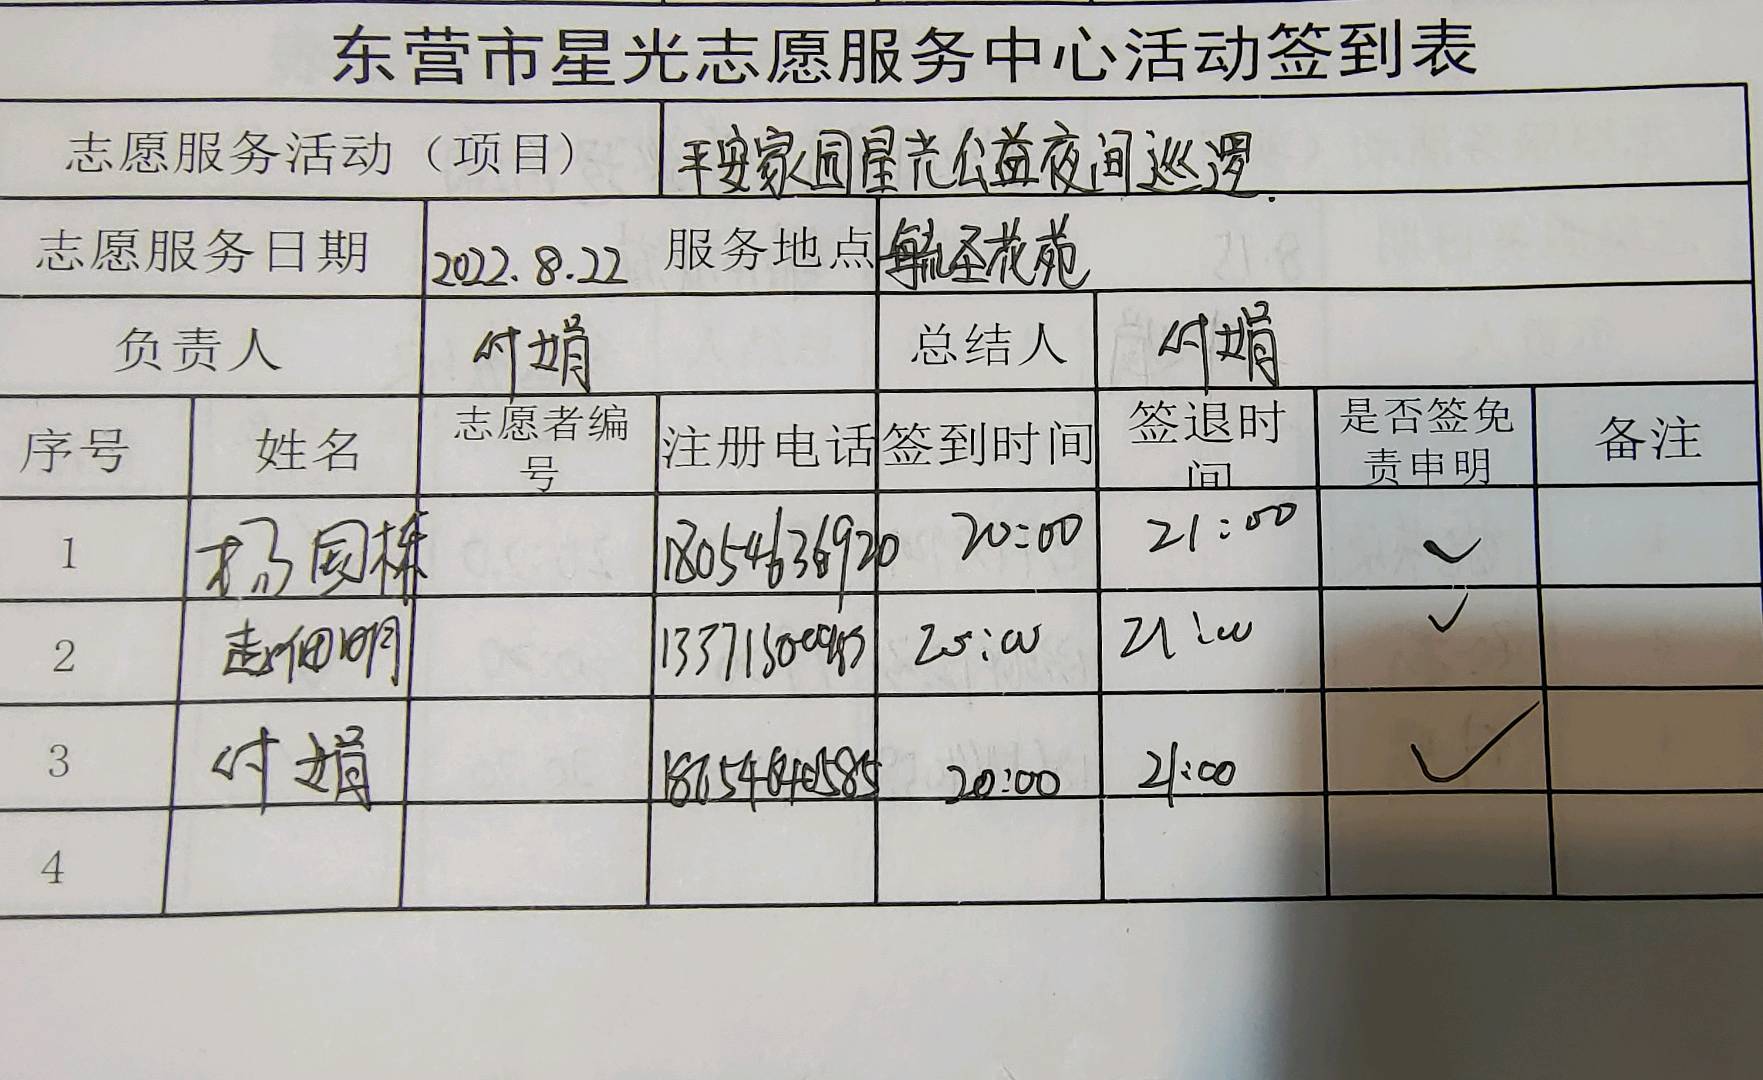 东营市星光志愿服务中心活动签到表
志愿服务活动（项目） 平安家园星光公益夜间巡逻
志愿服务日期 2022.8.22 服务地点 毓圣花苑
负责人 付娟 总结人 付娟
序号 姓名 志愿者编号 注册电话 签到时间 签退时间 是否签免责申明 备注
1 杨国栋 18054636920 20:00 21:00 ✓
2 20:00 21:00 ✓
3 付娟 20:00 21:00 ✓
4